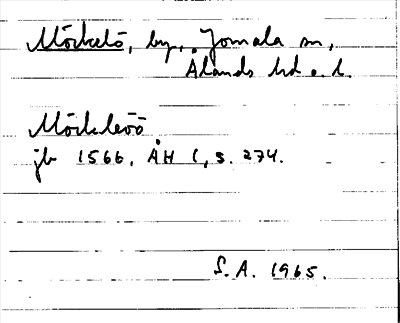 Mörckelö, by, Jomala sn,
Ålands hd o. l.
Mörckleöö
jb 1566, ÅH I, s. 274.
S.A. 1965.